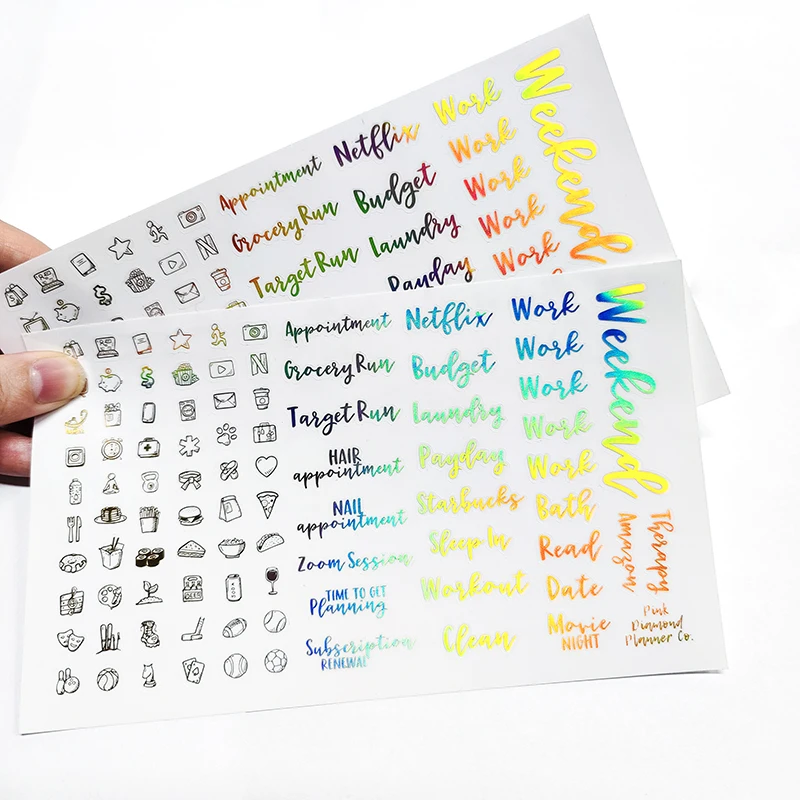 Appointment
Grocery Run
Target Run
Netflix
Budget
Laundry
Payday
Work
Work
Work
Work
Work
Weekend
N
N
Appointment
Grocery Run
Target Run
HAIR
appointment
NAIL
appointment
Zoom Session
TIME TO GET
Planning
Subscription
RENEWAL
Netflix
Budget
Laundry
Payday
Starbucks
Sleep In
Workout
Clean
Work
Work
Work
Work
Work
Bath
Read
Date
Movie
NIGHT
Weekend
Therapy
Amazon
Pink
Diamond
Planner Co.